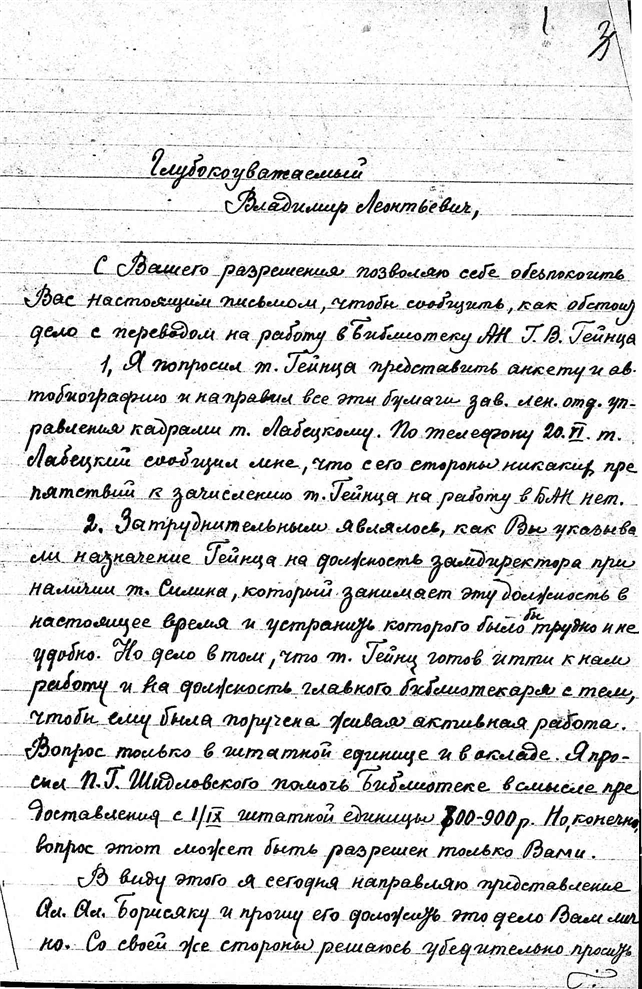 3
Глубокоуважаемый
Владимир Леонтьевич,
С Вашего разрешения позволяю себе обеспокоить
Вас настоящим письмом, чтобы сообщить, как обстоит
дело с переводом на работу в Библиотеку АН Г. В. Гейнца
1, Я попросил т. Гейнца представить анкету и ав-
тобиографию и направил все эти бумаги зав. лен. отд. уп-
равления кадрами т. Лабецкому. По телефону 20.VI. т.
Лабецкий сообщил мне, что с его стороны никаких пре
пятствий к зачислению т. Гейнца на работу в БАН нет.
2. Затруднительным являлось, как Вы указыва
ли назначение Гейнца на должность замдиректора при
наличии т. Силина, который занимает эту должность в
настоящее время и устранить которого было бы трудно и не
удобно. Но дело в том, что т. Гейнц готов итти к нам
работу и на должность главного библиотекаря с тем,
чтобы ему была поручена живая активная работа.
Вопрос только в штатной единице и в окладе. Я про-
сил П. Г. Шидловского помочь Библиотеке в смысле пре
доставления с 1/IX штатной единицы 800-900 р. Но, конечно,
вопрос этот может быть разрешен только Вами.
В виду этого я сегодня направляю представление
Ал. Ал. Борисяку и прошу его доложить это дело Вам лич
но. Со своей же стороны решаюсь убедительно просить